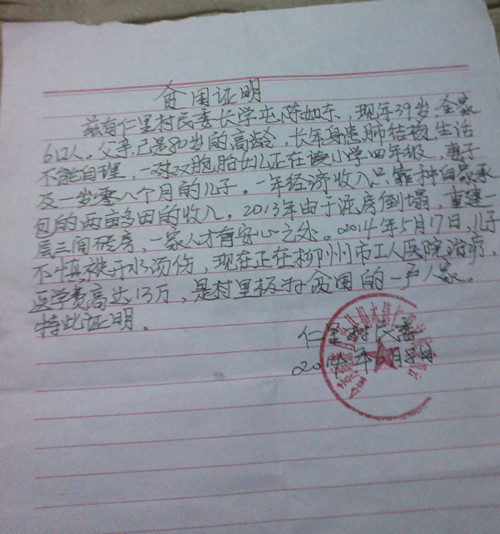 贫困证明
兹有仁里村民委长学屯,陈如东,现年39岁,全家
6口人。父亲已是80岁的高龄,长年身患肺结核,生活
不能自理,一对双胞胎女儿正在读小学四年级,妻子
及一岁零八个月的儿子。一年经济收入只靠种自家承
包的两亩多田的收入。2013年由于泥房倒塌,重建一
层三间砖房,一家人才有安心之处。2014年5月17日,儿子
不慎被开水汤伤,现在正在柳州市工人医院治疗,
医学费高达13万,是村里极为贫困的一户人家。
特此证明。
仁里村民委